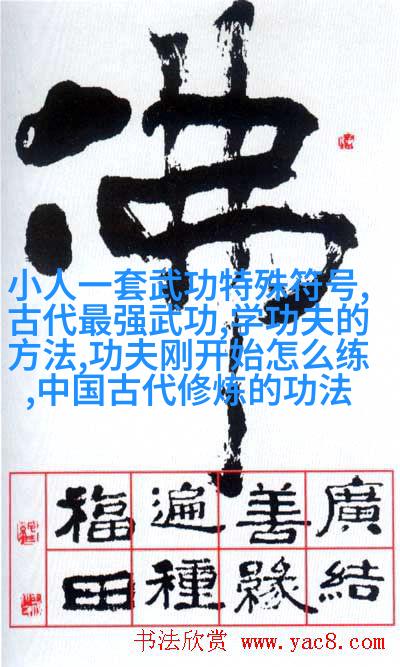 佛
小人一套武功特殊符号,
古代最强武功,学功夫的
方法,功夫刚开始怎么练
,中国古代修炼的功法
廣結
善緣
遍種
福田
书法欣赏 www.yac8.com